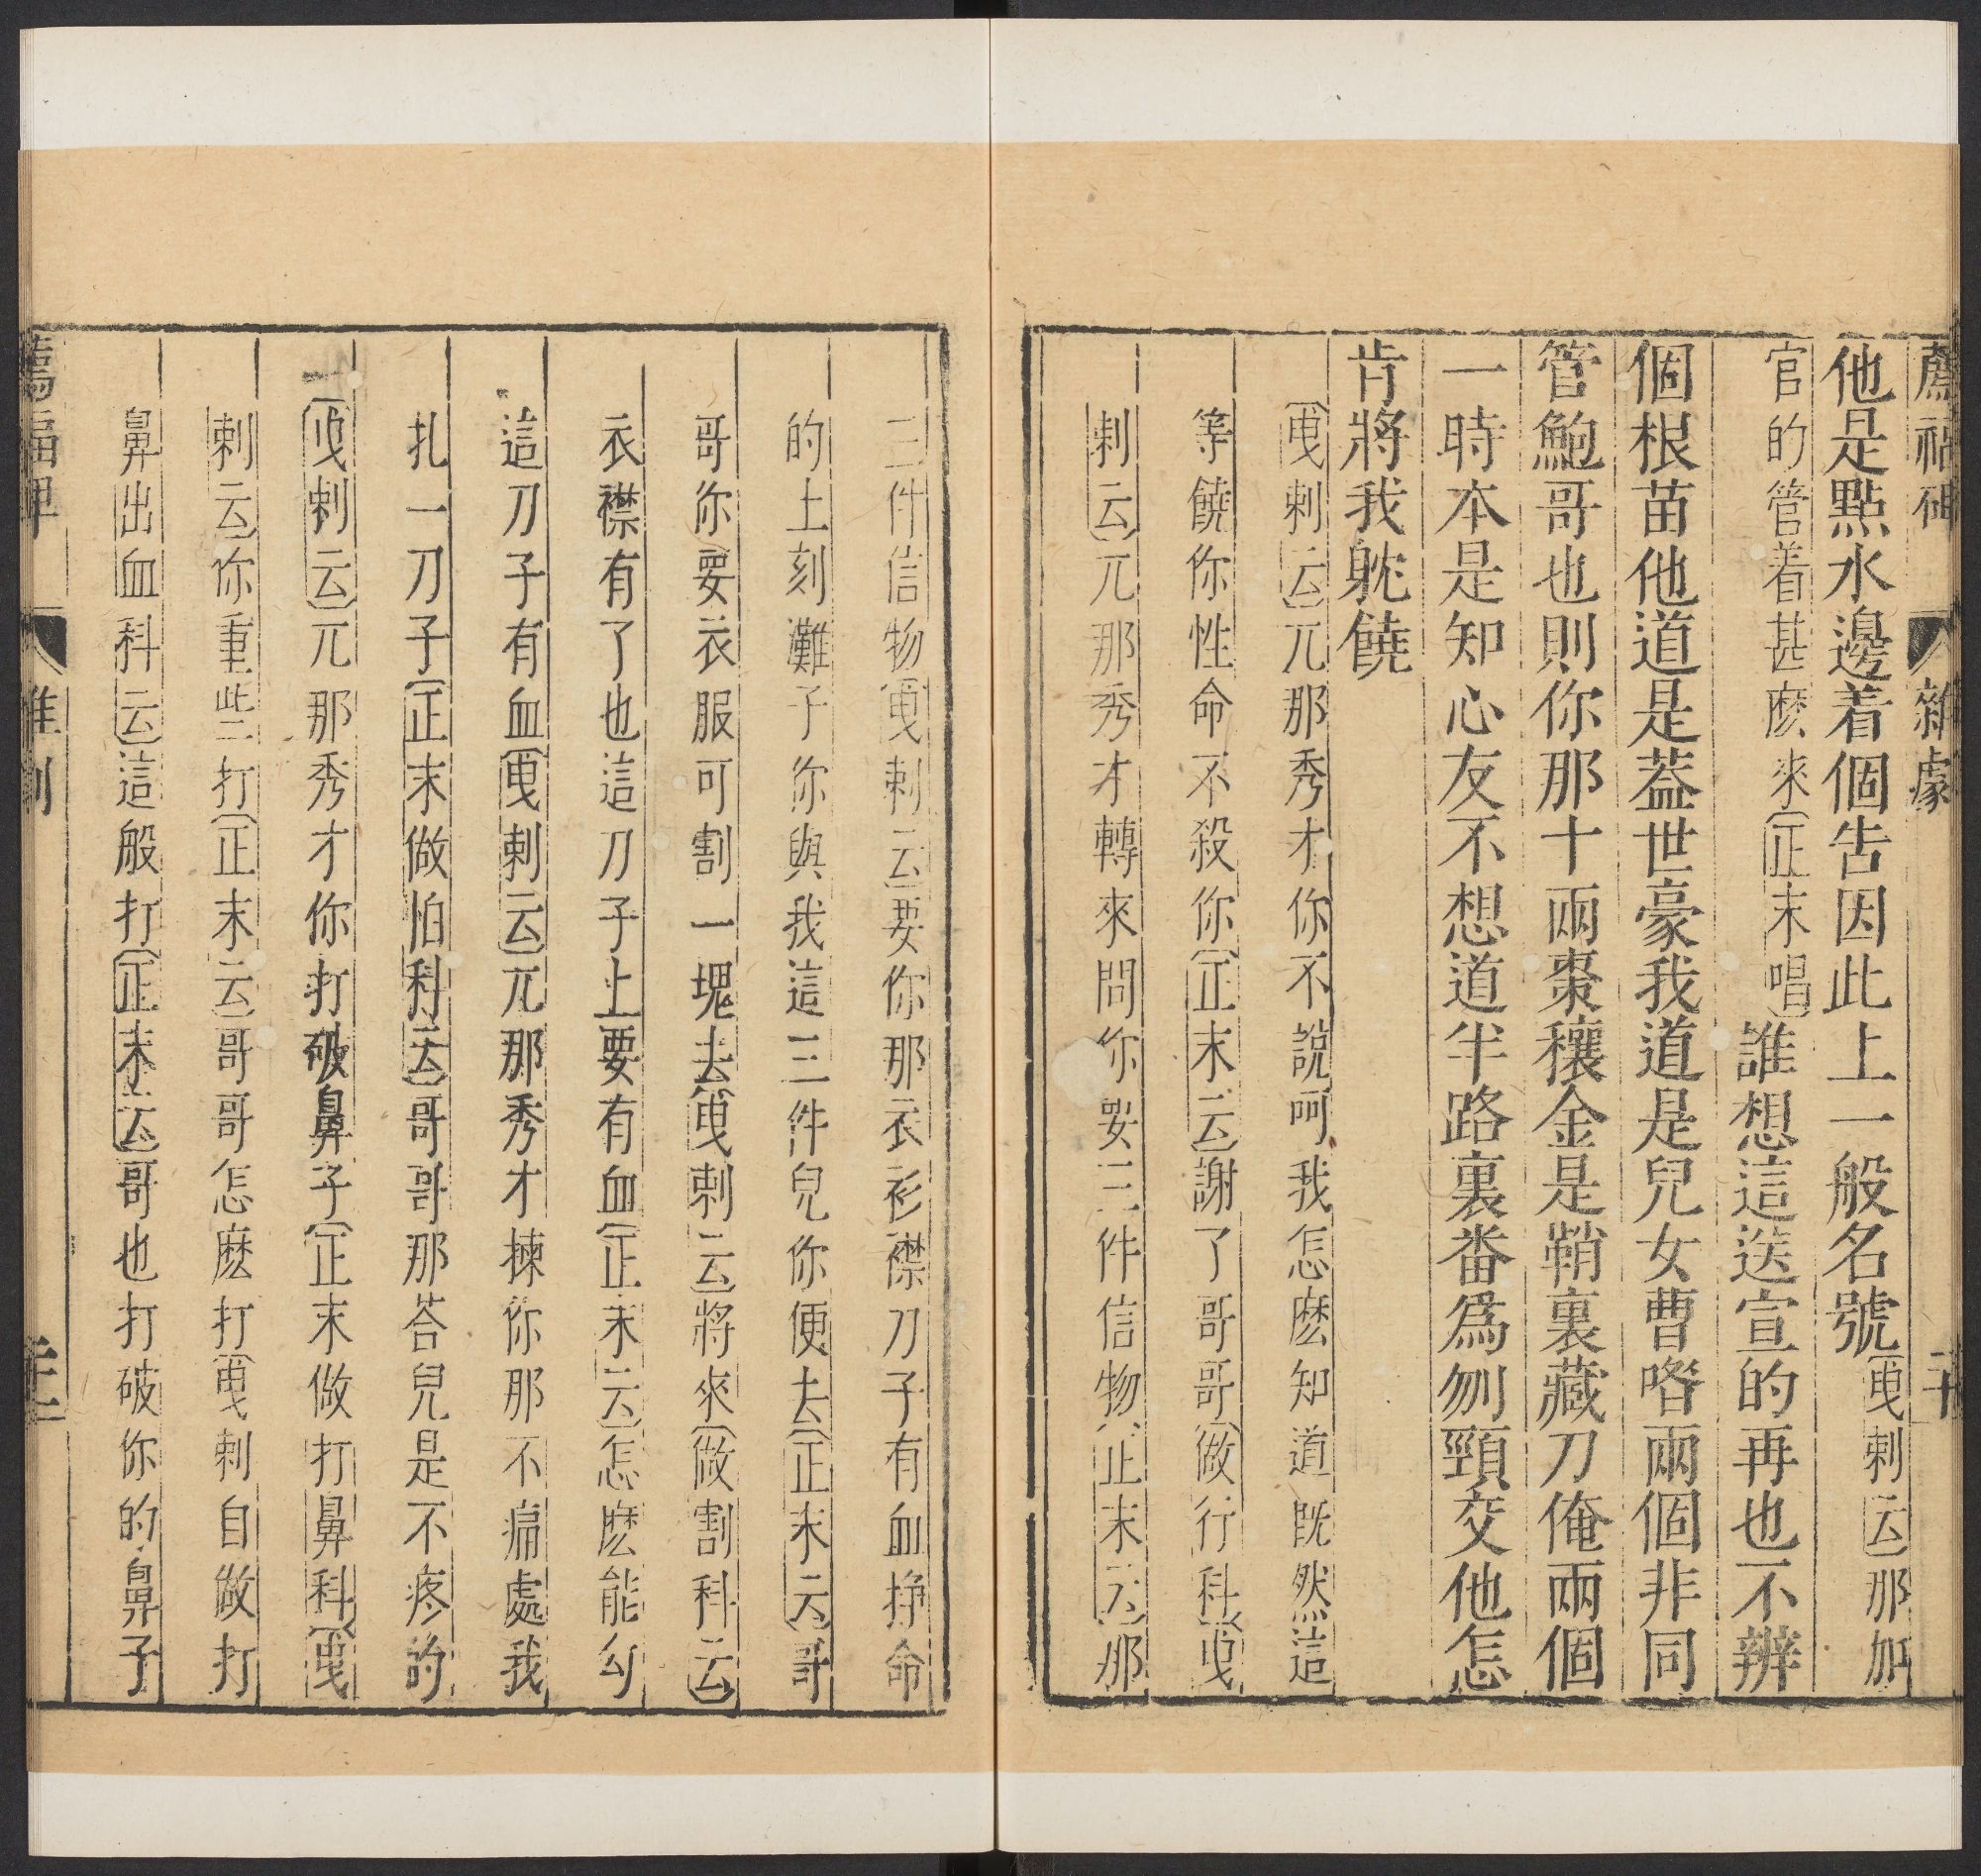 薦福碑 雜劇 二十
他是點水邊着個告因此上一般名號〔曳剌云〕那加
官的管着甚麽來〔正末唱〕誰想這送宣的再也不辨
個根苗他道是葢世豪我道是兒女曹喒兩個非同
管鮑哥也則你那十兩棗穰金是鞘裏藏刀俺兩個
一時本是知心友不想道半路裏畨爲刎頸交他怎
肯將我躭饒
〔曳剌云〕兀那秀才你不說呵我怎麽知道旣然這
等饒你性命不殺你〔正末云〕謝了哥哥〔做行科〕〔曳
剌云〕兀那秀才轉來問你要三件信物〔正末云〕那
三件信物〔曳剌云〕要你那衣衫襟刀子有血掙命
的土刻灘子你與我這三件兒你便去〔正末云〕哥
哥你要衣服可割一塊去〔曳剌云〕將來〔做割科云〕
衣襟有了也這刀子上要有血〔正末云〕怎麽能勾
這刀子有血〔曳剌云〕兀那秀才揀你那不痛處我
扎一刀子〔正末做怕科云〕哥哥那荅兒是不疼的
〔曳剌云〕兀那秀才你打破鼻子〔正末做打鼻科〕〔曳
剌云〕你重些打〔正末云〕哥哥怎麽打〔曳剌自做打
鼻出血科云〕這般打〔正末云〕哥也打破你的鼻子
薦福碑 雜劇